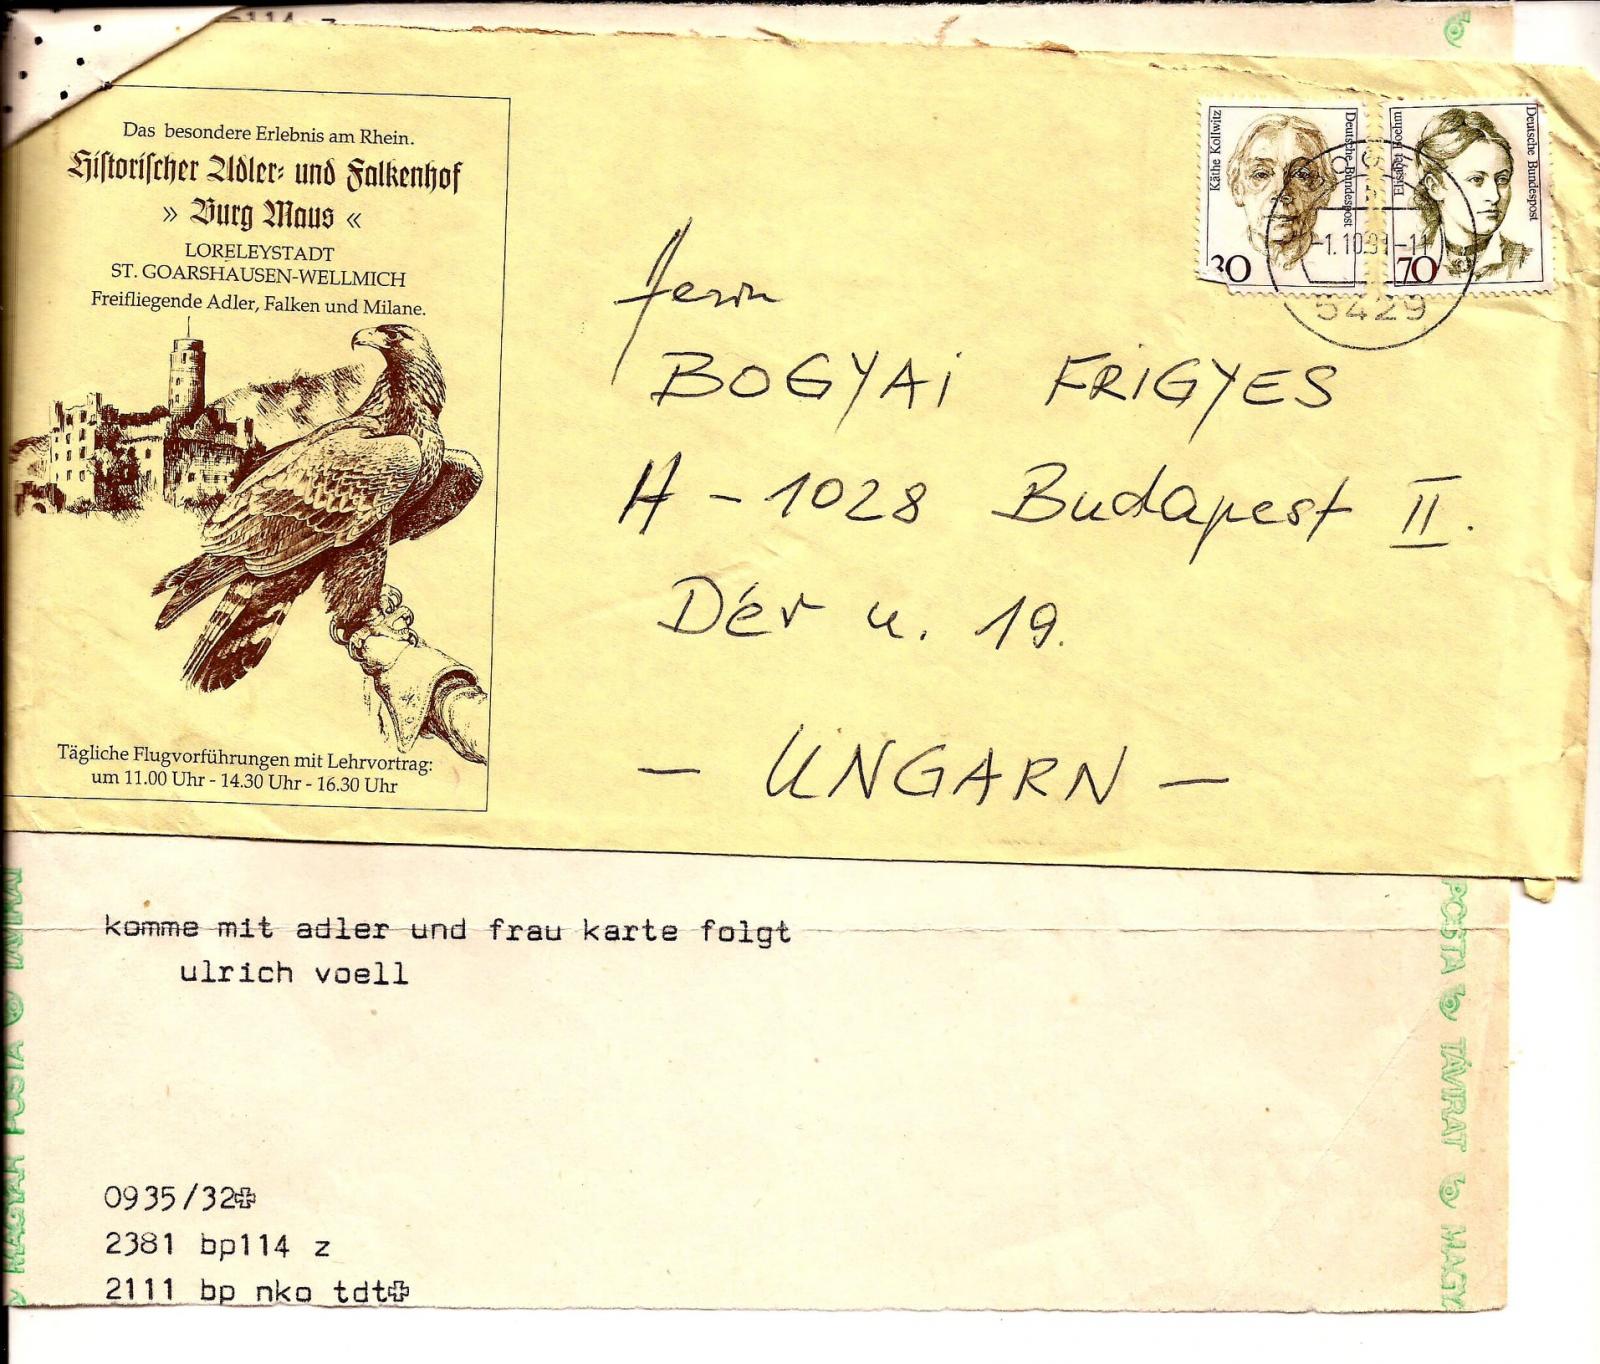 bp114 z
Das besondere Erlebnis am Rhein.
Historischer Adler- und Falkenhof
» Burg Maus «
LORELEYSTADT
ST. GOARSHAUSEN-WELLMICH
Freifliegende Adler, Falken und Milane.
Tägliche Flugvorführungen mit Lehrvortrag:
um 11.00 Uhr - 14.30 Uhr - 16.30 Uhr
Käthe Kollwitz
Deutsche Bundespost
30
Elisabet Boehm
Deutsche Bundespost
70
-1.10.91-11
5429
Herrn
BOGYAI FRIGYES
H - 1028 Budapest II.
Dér u. 19.
- UNGARN -
komme mit adler und frau karte folgt
ulrich voell
0935/32✠
2381 bp114 z
2111 bp nko tdt✠
MAGYAR POSTA TÁVIRAT
POSTA TÁVIRAT MAGY